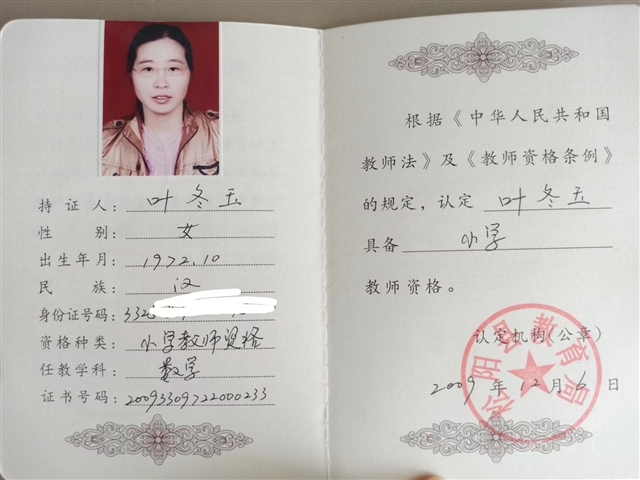 持证人：叶冬玉
性别：女
出生年月：1972.10
民族：汉
身份证号码：332
资格种类：小学教师资格
任教学科：数学
证书号码：20093309722000233
根据《中华人民共和国
教师法》及《教师资格条例》
的规定，认定 叶冬玉
具备 小学
教师资格。
认定机构(公章)
2009 年 12 月 6 日
松阳县教育局